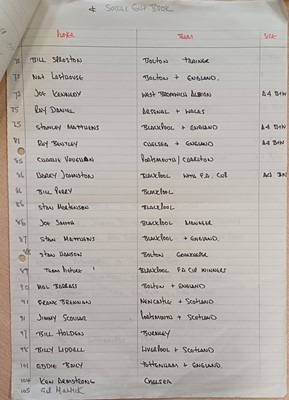 Soccer Gift Book
PLAYER TEAM SIZE
Bill Sproston Bolton Trainer
70 Nat Lofthouse Bolton + England
72 Joe Kennedy West Bromwich Albion A4 B+W
75 Ray Daniel Arsenal + Wales
75 Stanley Matthews Blackpool + England A4 B+W
81 Roy Bentley Chelsea + England A4 B+W
85 Charlie Vaughan Portsmouth / Charlton
86 Harry Johnston Blackpool with F.A. Cup
86 Bill Perry Blackpool
86 Stan Mortenson Blackpool
86 Joe Smith Blackpool Manager
87 Stan Matthews Blackpool + England
88 Stan Hanson Bolton Goalkeeper
89 Team Picture Blackpool F.A Cup Winners
90 Mal Barrass Bolton + England
91 Frank Brennan Newcastle + Scotland
91 Jimmy Scoular Portsmouth + Scotland
97 Bill Holden Burnley
98 Billy Liddell Liverpool + Scotland
101 Eddie Baily Tottenham + England
104 Ken Armstrong Chelsea
105